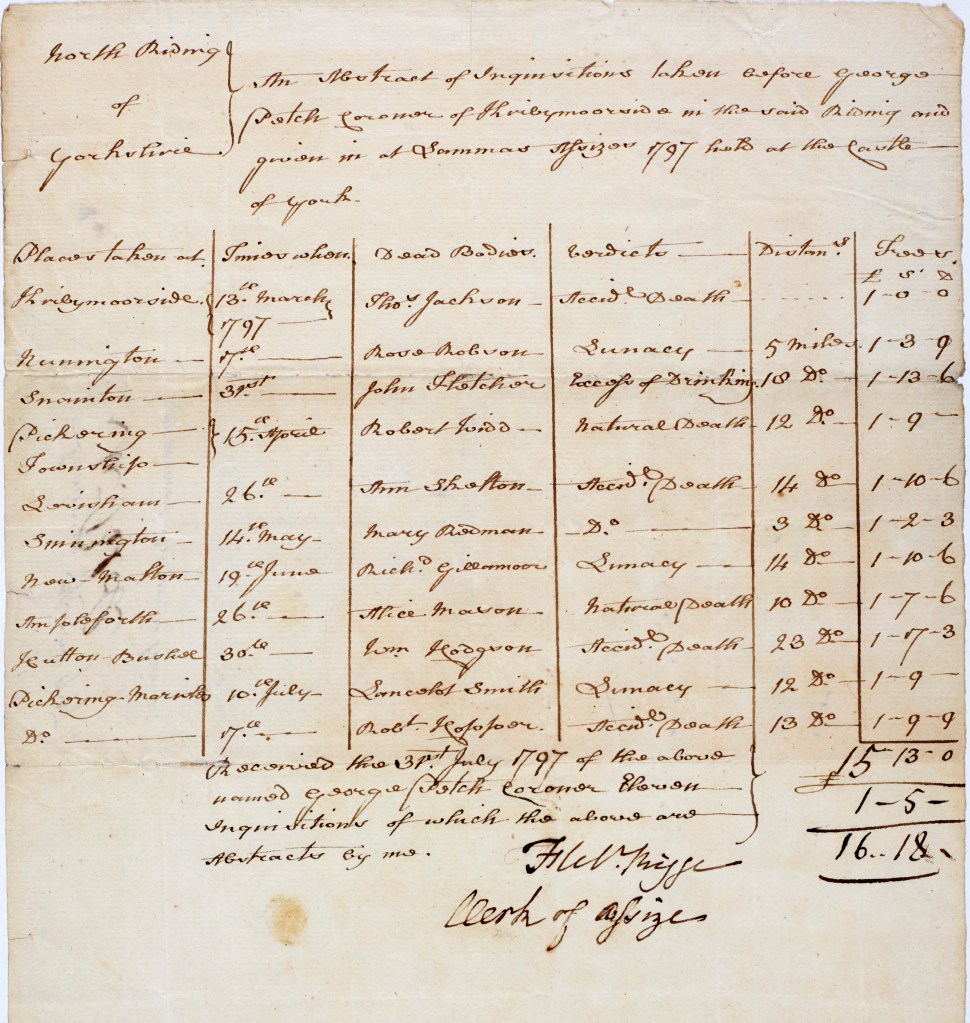 North Riding
of
Yorkshire
An Abstract of Inquisitions taken before George
Petch Coroner of Kirbymoorside in the said Riding and
given in at Lammas Assizes 1797 held at the Castle
of York.
Places taken at. Times when. Dead Bodies. Verdicts Distans. Fees.
£ S D
Kirbymoorside 13th March 1797 Thos. Jackson Accidl. Death ..... 1-0-0
Nunnington 17th Rose Robson Lunacy 5 Miles 1-3-9
Snainton 31st John Fletcher Excess of Drinking 18 Do 1-13-6
Pickering 15th April Robert Widd Natural Death 12 Do 1-9-
Township
Levisham 26th Ann Shelton Accidl. Death 14 Do 1-10-6
Sinnington 14th May Mary Redman Do 3 Do 1-2-3
New Malton 19th June Richd. Gillamoor Lunacy 14 Do 1-10-6
Ampleforth 26th Alice Mason Natural Death 10 Do 1-7-6
Hutton Bushel 30th Wm Hodgson Accidl. Death 23 Do 1-17-3
Pickering Marishes 10th July Lancelot Smith Lunacy 12 Do 1-9-
Do 17th Robt. Hopper. Accidl. Death 13 Do 1-9-9
Received the 31st July 1797 of the above
named George Petch Coroner Eleven
Inquisitions of which the above are
Abstracts by me.
£ 15-13-0
1-5-
16..18-
Rigge
Clerk of Assize